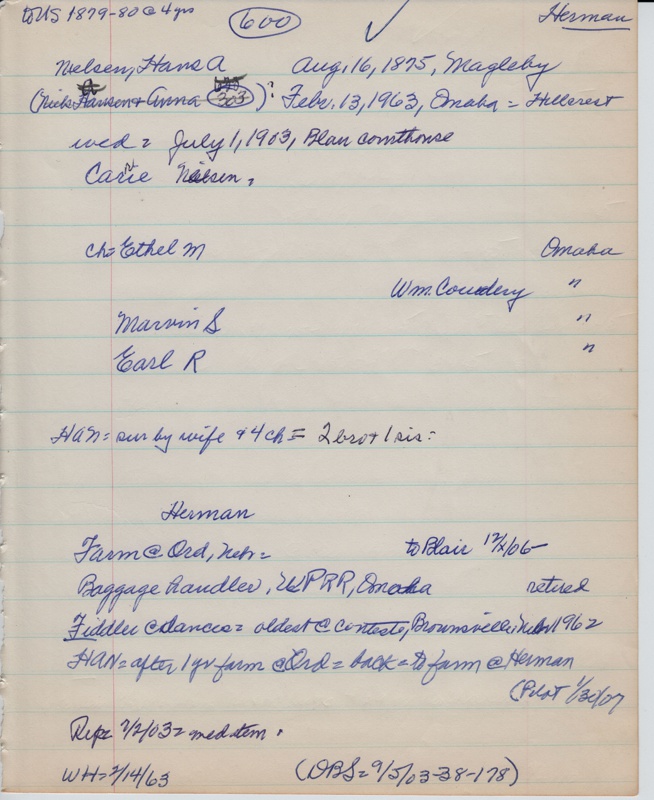 to US 1879-80 @ 4 yrs
600 ✓ Herman
Nielsen, Hans A Aug. 16, 1875, Magleby
(Niels Hansen + Anna 303): Febr. 13, 1963, Omaha = Hillcrest
wed = July 1, 1903, Blair courthouse
Carie Nielsen,
ch = Ethel M Omaha
Wm. "
Marvin S "
Earl R "
HAN = sur by wife + 4 ch = 2 bro + 1 sis =
Herman
Farm @ Ord, Nebr = to Blair 12/x/06
Baggage handler, UPRR, Omaha retired
Fiddler @ dances = oldest @ contests, Brownsville, Nebr 1962
HAN = after 1 yr farm @ Ord = back = to farm @ Herman
(Pilot 1/30/07
7/2/03 = med item.
WH = 2/14/63 (DBS = 9/5/03-38-178)